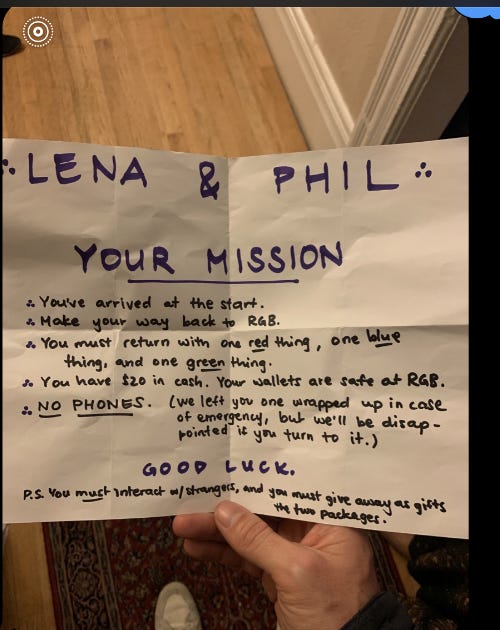 ∴ LENA & PHIL ∴
YOUR MISSION
∴ You've arrived at the start.
∴ Make your way back to RGB.
∴ You must return with one red thing, one blue
thing, and one green thing.
∴ You have $20 in cash. Your wallets are safe at RGB.
∴ NO PHONES. (we left you one wrapped up in case
of emergency, but we'll be disap-
pointed if you turn to it.)
GOOD LUCK.
P.S. You must interact w/strangers, and you must give away as gifts
the two packages.